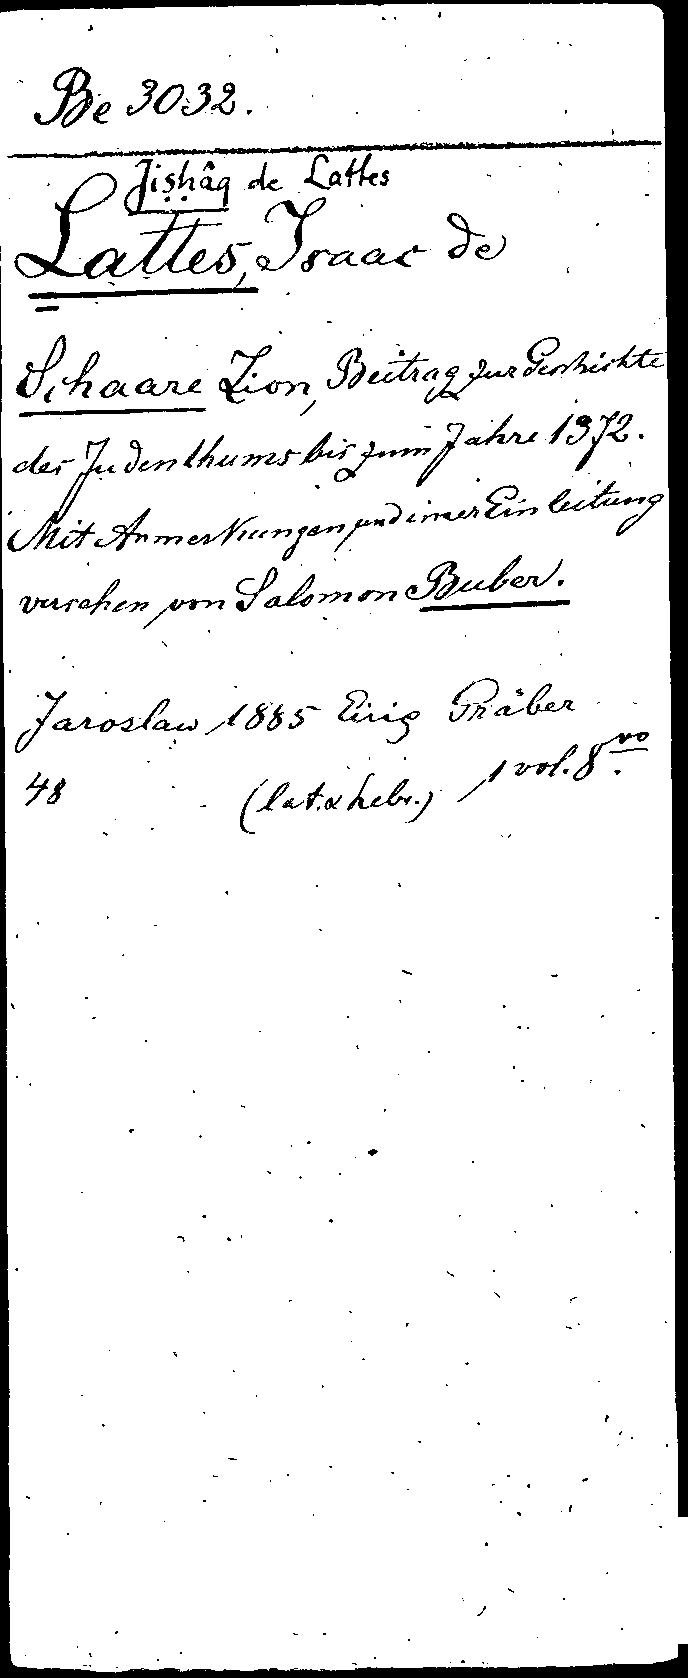 Be 3032.
Jiṣḥâq de Lattes
Lattes, Isaac de
Schaare Zion, Beitrag zur Geschichte
des Judenthums bis zum Jahre 1372.
Mit Anmerkungen und einer Einleitung
versehen von Salomon Buber.
Jaroslaw 1885 Eisig Gräber
48 (lat. & hebr.) 1 vol. 8vo.